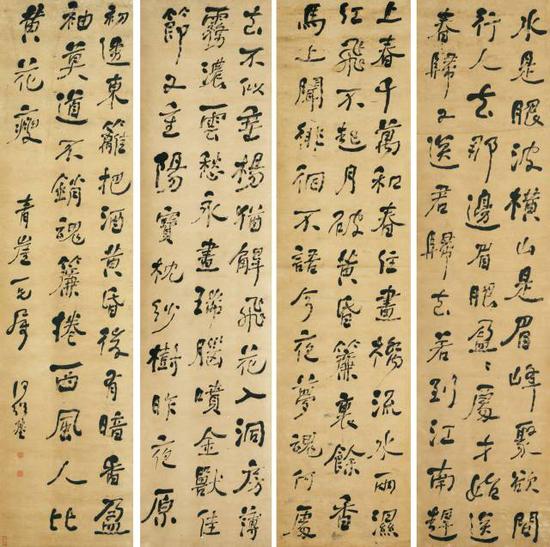 水是眼波橫山是眉峰聚欲問
行人去那邊眉眼盈盈處才始送
春歸又送君歸去若到江南趕
上春千萬和春住畫橋流水雨濕
紅飛不起月破黃昏簾裏餘香
馬上聞徘徊不語今夜夢魂何處
去不似垂楊猶解飛花入洞房薄
霧濃雲愁永晝瑞腦噴金獸佳
節又重陽寶枕紗櫥昨夜涼
初透東籬把酒黃昏後有暗香盈
袖莫道不銷魂簾捲西風人比
黃花瘦 青崖仁兄屬 何紹基